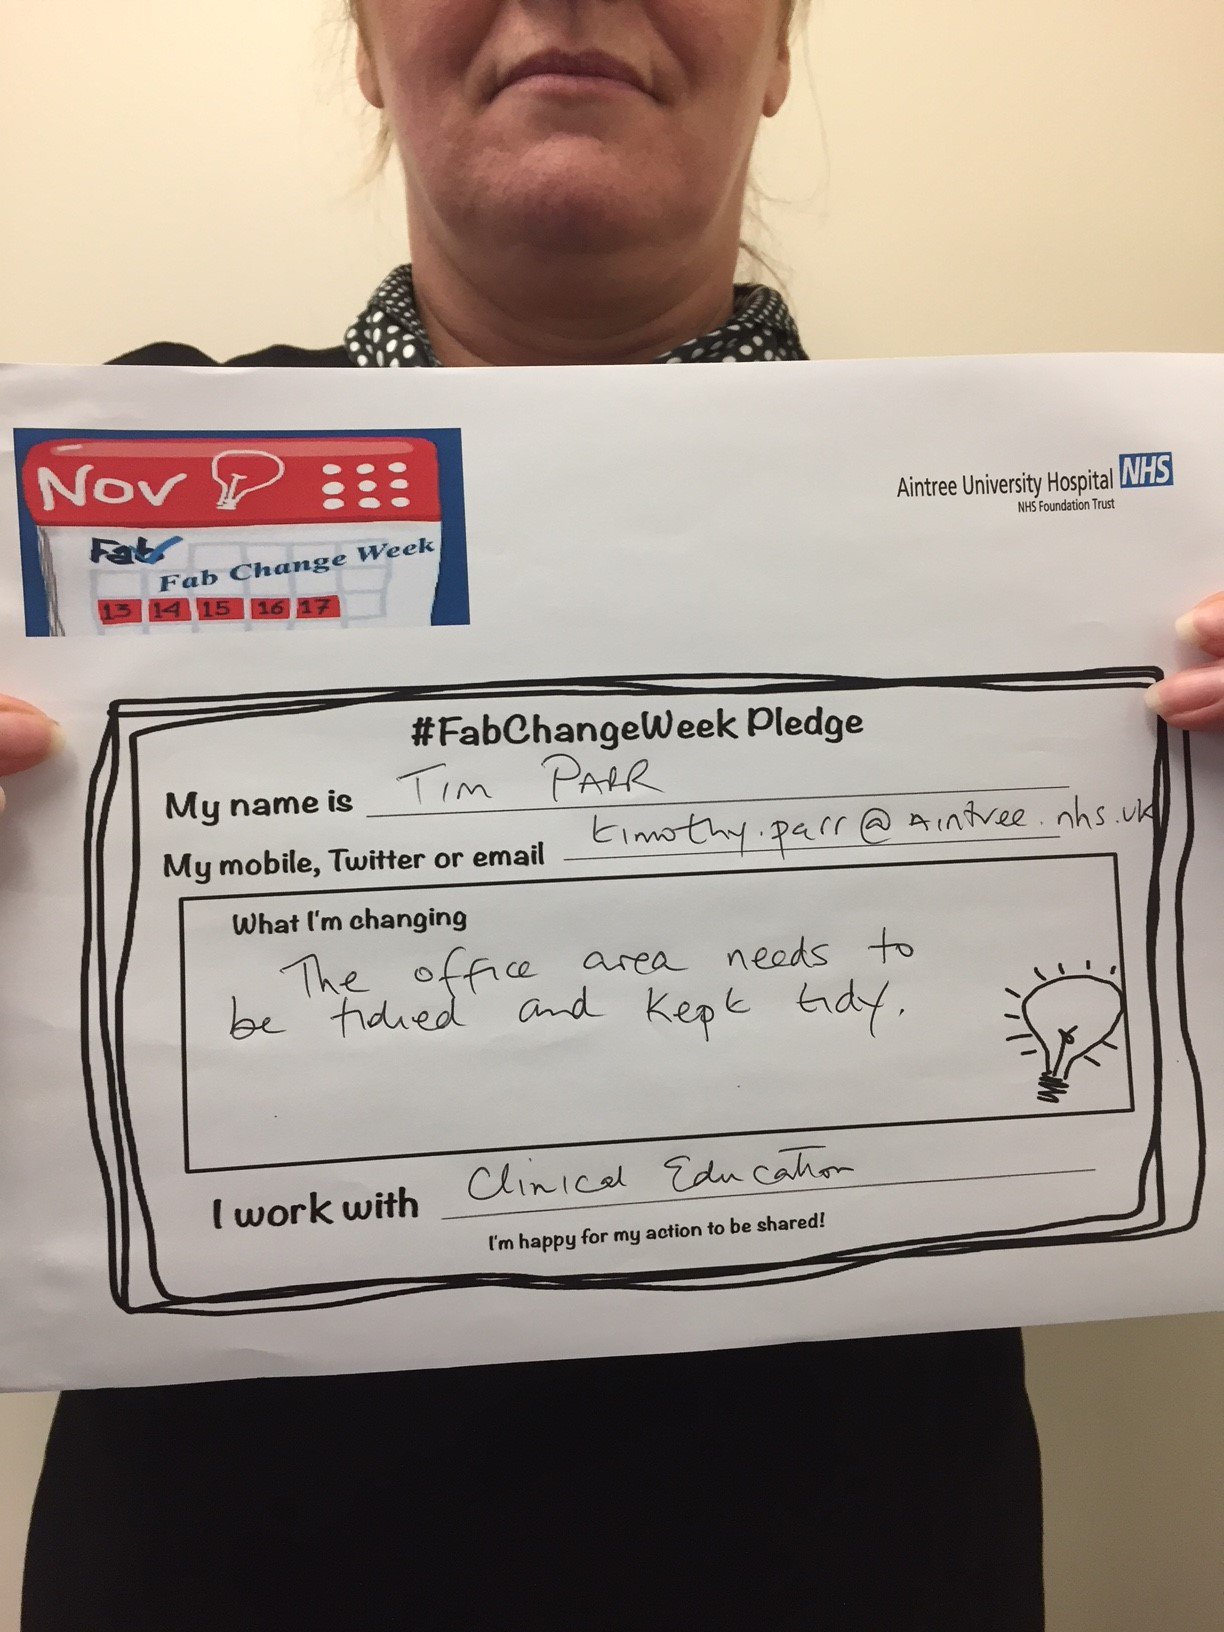 Nov
Aintree University Hospital NHS
NHS Foundation Trust
Fab
Fab Change Week
13 14 15 16 17
#FabChangeWeek Pledge
My name is TIM PARR
My mobile, Twitter or email timothy.parr@Aintree.nhs.uk
What I'm changing
The office area needs to
be tidied and kept tidy.
I work with Clinical Education
I'm happy for my action to be shared!